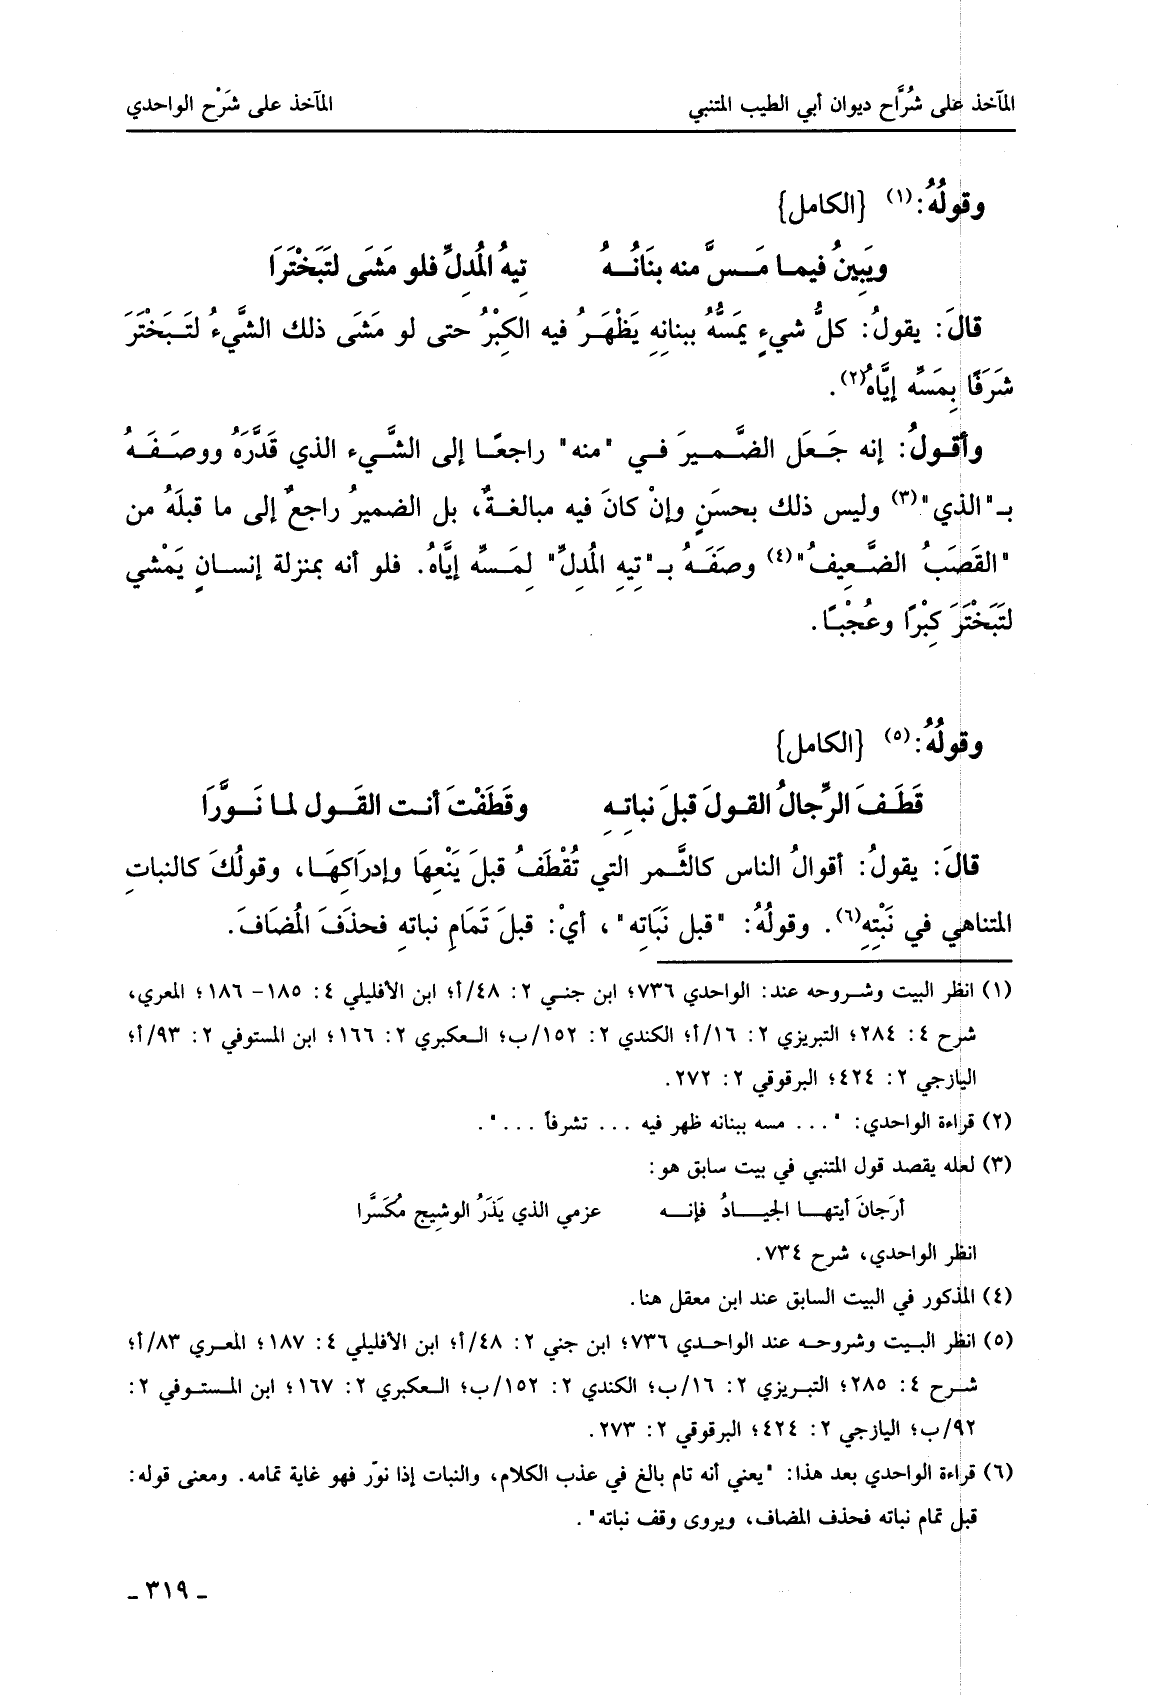 المآخذ على شُرَّاح ديوان أبي الطيب المتنبي
المآخذ على شَرْح الواحدي
وقولُهُ:(١) {الكامل}
ويَبِينُ فيمـا مَـسَّ منه بنَانُـهُ تِيهُ المُدلِّ فلو مَشَى لتَبَخْتَرَا
قالَ: يقولُ: كلُّ شيءٍ يمَسُّهُ ببنانِهِ يَظْهَـرُ فيه الكِبْرُ حتى لو مَشَى ذلك الشَّيءُ لتَـبَخْتَرَ
شَرَفًا بِمَسِّه إيَّاهُ(٢).
وأقـولُ: إنه جَـعَل الضَّـمـيرَ فـي "منه" راجعًـا إلى الشَّـيء الذي قَدَّرَهُ ووصَـفَـهُ
بـ"الذي"(٣) وليس ذلك بحسَنٍ وإنْ كانَ فيه مبالغـةٌ، بل الضميرُ راجعٌ إلى ما قبلَهُ من
"القَصَبُ الضَّـعِيفُ"(٤) وصفَـهُ بـ"تِيهِ المُدِلِّ" لِمَـسِّه إيَّاهُ. فلو أنه بمنزلة إنسـانٍ يَمْشي
لتَبَخْتَرَ كِبْرًا وعُجْبًـا.
وقولُهُ:(٥) {الكامل}
قَطَـفَ الرِّجالُ القـولَ قبلَ نباتِـهِ وقَطَفْتَ أنـت القَـول لمـا نَـوَّرَا
قالَ: يقولُ: أقوالُ الناس كالثَّـمر التي تُقْطَفُ قبلَ يَنْعِهَا وإدرَاكِهَـا، وقولُكَ كالنباتِ
المتناهي في نَبْتِهِ(٦). وقولُهُ: "قبل نَبَاتِه"، أيْ: قبلَ تَمَامِ نباتِه فحذَفَ المُضَافَ.
(١) انظر البيت وشـروحه عند: الواحدي ٧٣٦؛ ابن جنـي ٢: ٤٨/أ؛ ابن الأفليلي ٤: ١٨٥- ١٨٦؛ المعري،
شرح ٤: ٢٨٤؛ التبريزي ٢: ١٦/أ؛ الكندي ٢: ١٥٢/ب؛ الـعكبري ٢: ١٦٦؛ ابن المستوفي ٢: ٩٣/أ؛
اليازجي ٢: ٤٢٤؛ البرقوقي ٢: ٢٧٢.
(٢) قراءة الواحدي: "... مسه ببنانه ظهر فيه ... تشرفاً ...".
(٣) لعله يقصد قول المتنبي في بيت سابق هو:
أرَجانَ أيتهـا الجيـادُ فإنـه عزمي الذي يَذَرُ الوشِيج مُكَسَّرا
انظر الواحدي، شرح ٧٣٤.
(٤) المذكور في البيت السابق عند ابن معقل هنا.
(٥) انظر البـيت وشروحـه عند الواحـدي ٧٣٦؛ ابن جني ٢: ٤٨/أ؛ ابن الأفليلي ٤: ١٨٧؛ المعـري ٨٣/أ؛
شـرح ٤: ٢٨٥؛ التبريزي ٢: ١٦/ب؛ الكندي ٢: ١٥٢/ب؛ الـعكبري ٢: ١٦٧؛ ابن المـستـوفي ٢:
٩٢/ب؛ اليازجي ٢: ٤٢٤؛ البرقوقي ٢: ٢٧٣.
(٦) قراءة الواحدي بعد هذا: "يعني أنه تام بالغ في عذب الكلام، والنبات إذا نوّر فهو غاية تمامه. ومعنى قوله:
قبل تمام نباته فحذف المضاف، ويروى وقف نباته".
- ٣١٩ -